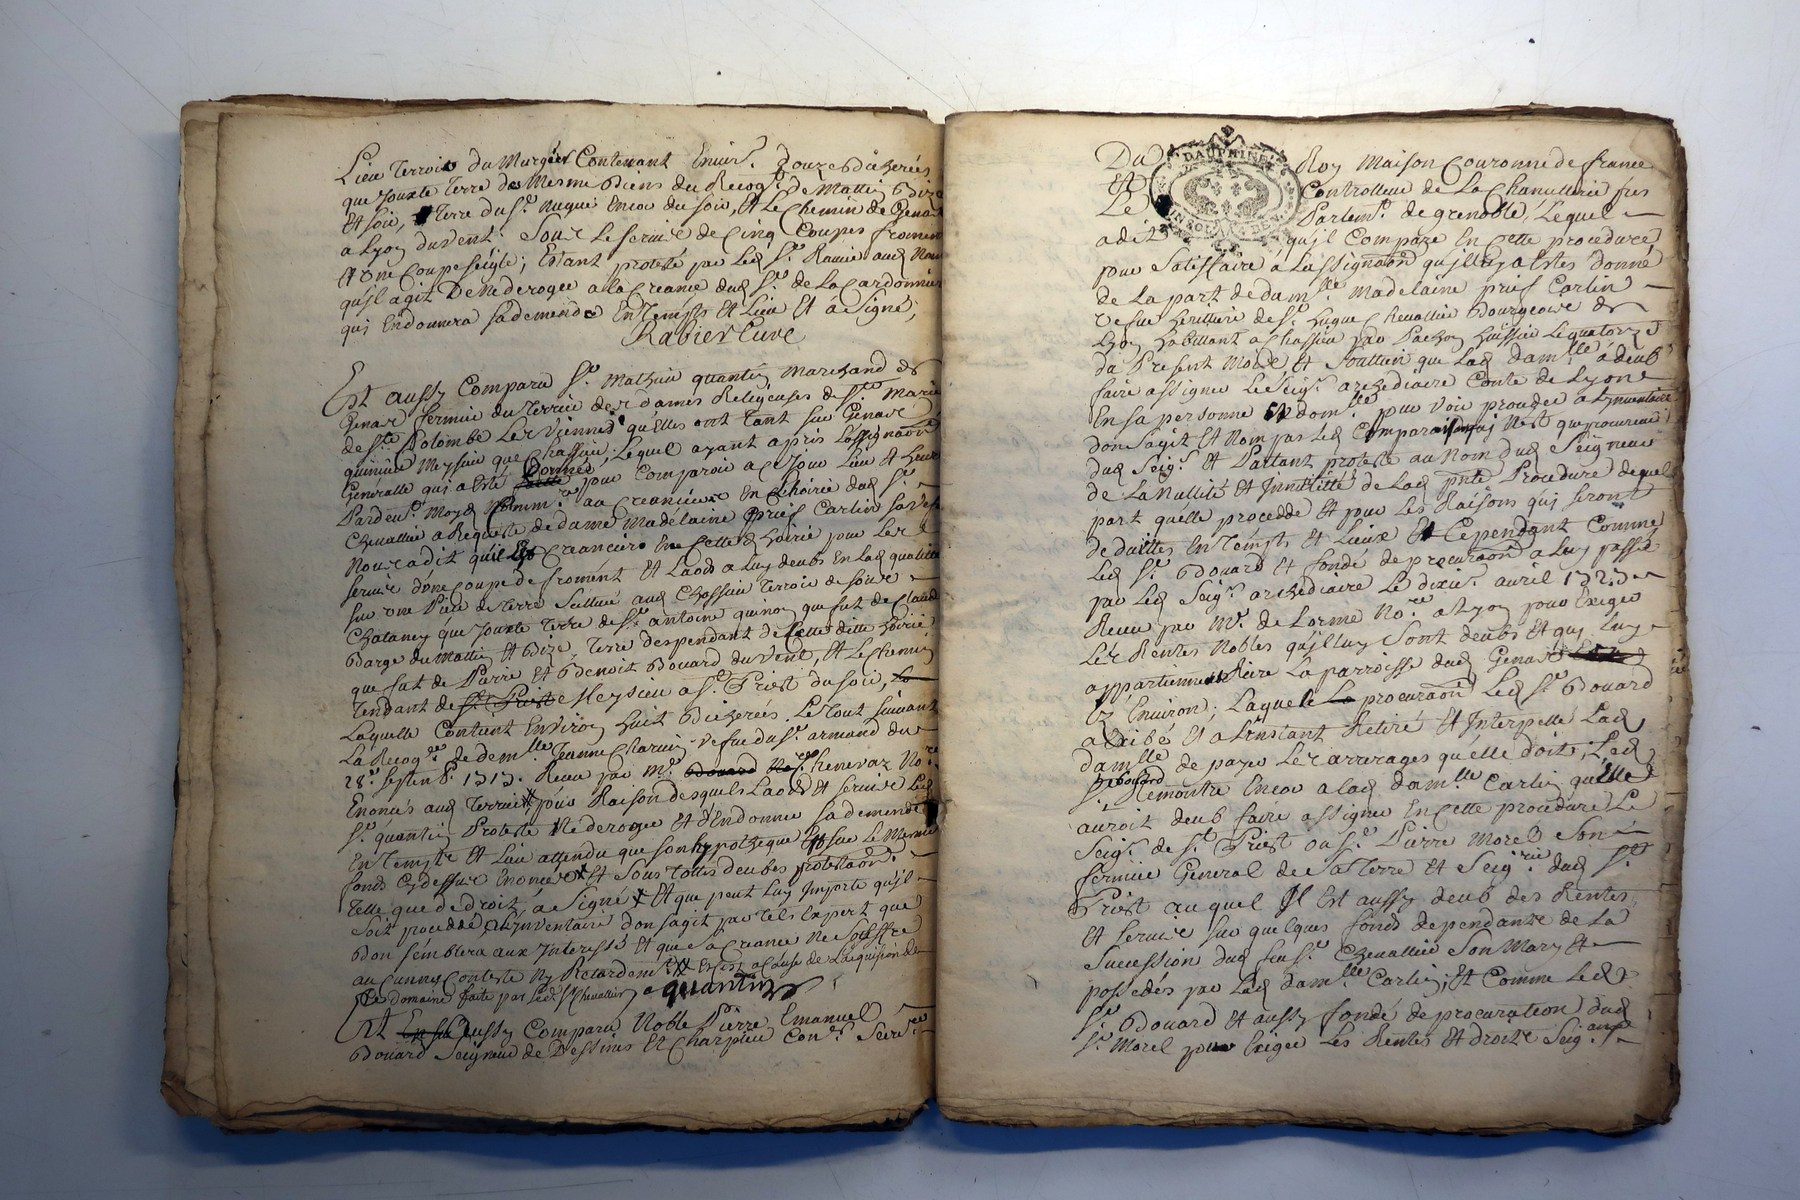 Lieu terroir du Murgier Contenant Envir. douze bicherées
que jouxte terre de mesme biens du Recog.t de Matin bize
Et soir, terre du s.r Encor du soir, Et le Chemin de Genas
a Lyon du vent. Sous le servis de Cinq Coupes froment
Et une Coupe seigle; Estant protesté par led s.r Ravier aud Nom
qu'jl agit De Ne deroger a la Creance dud s.r de la Cardonniere
quj En donnera sa demende En Temps Et Lieu Et a Signé;
Rabier Curé
Est aussy Comparu s.r Mathieu quantin Marchand de
Genas fermier du Terrier des dames Religieuses de s.te Marie
de s.te Colombe Les Vienne qu'elles ont tant sur Genas
Meysieu que Chassieu; Lequel ayant apris L'assignaon
Generalle qui a Esté donnée pour Comparoir a ce jour Lieu et heure
Pardev.t Moyd Comm.re aux Creanciers En L'hoirie dud s.r
Chevallier a Requeste de dame Madelaine Prief Carlin sa vefve
Nous a dit qu'il Est Creancier En Cette hoirie pour Le
servis d'une Coupe de froment Et Laods a Luy deubs En lad qualitté
sur une Piece de Terre Scittuée aud Chassieu Terroir de
Chalaney que jouxte Terre de s.r antoine quinon qui fut de Claude
Barge du Matin Et bize, Terre despendant de Cette ditte hoirie
que fut de Pierre Et Benoit Bouard du vent, Et le Chemin
Tendant de st Priest Meysieu a s.t Priest du soir,
Laquelle Contient Environ huit Bicherées. Le tout suivant
La Recog.ce de dem.lle Jeanne Charvin vefve du s.r armand du
28.e Septem.b 1713. Receu par M.e Bouard No.re Chenevaz No.re
Enoncés aud Terrier pour Raison desquels Laods et servis Led
s.r quantin Proteste Ne deroger Et d'En donner sa demende
En Temps Et Lieu attendu que son hypotheque Est sur Le Mesme
fond Cy dessus Enoncé Et Sous Toutes deubes protestaons
Telle que de droit, a Signé Et que peut Luy Importe qu'jl
Soit procedé a L'Inventaire don s'agit par tels Expert que
bon semblera aux Interessé Et que sa Creance Ne soeffre
aucunne Conteste Ny Retardem.t a Cause de L'acquisition
de domaine faite par led s.r Chevallier a quantin
Est aussy Comparu Noble Pierre Emanuel
Bouard Seigneur de Dessines Et Charpieu Con.er Secre.re
Du Roy Maison Couronne de france
Et Controlleur de La Chancellerie pres
Le Parlem.t de grenoble, Lequel
DAUPHINE
a dit qu'jl Compare En Cette procedure
pour Satisfaire a L'assignaon qu'jl luy a Estes donné
de La part de dam.lle Madelaine prief Carlin
vefve heritiere de s.r hugue Chevallier Bourgeois de
Lyon habittant a Chassieu par Pachon huissier Le quatorze
du Present Mois Et Souttien que Lad dam.lle a deub
faire assigner Le Seig.r archediacre Conte de Lyon
En sa personne Et dom.lle pour voir proceder a L'Inventaire
don s'agit Et Non pas Led Comparaissant quj N'est que procureur
dud Seig.r Et Partant proteste au Nom dud Seigneur
de La Nullité Et Innutilitté de Lad pnte Procedure de quel
part qu'elle procedde Et pour Les Raisons quj seront
deduittes En Temps Et Lieux Et Cependant Comme
Led s.r Bouard Et fondé de procuraon a Luy passée
par Led Seig.r archediacre Le dixie.e avril
Receu par M.e de Lorme No.re a Lyon pour Exiger
Les Rentes Nobles qu'jl luy Sont deubs Et quj Luy
appartiennent Riere La parroisse dud Genas
Et Environ; Laquelle procuraon Led s.r Bouard
a Exibé Et a L'instant Retiré Et Interpellé Lad
dam.lle de payer Les arrerages qu'elle doit; Led
s.r Bouard Remontre Encor a lad dam.lle Carlin qu'elle
auroit deub faire assigner En Cette procedure Le
Seig.r de s.t Priest ou s.r Pierre Morel Son
fermier General de Sa Terre Et Seig.rie dud s.t
Priest auquel Il Est aussy deub des Rentes
Et servis sur quelques fonds dependants de La
Sucession dud feu s.r Chevallier Son Mary Et
possedés par Lad dam.lle Carlin; Et Comme Led
s.r Bouard Et aussy fondé de procuration dud
s.r Morel pour Exiger Les Rentes Et droits Seig.aux